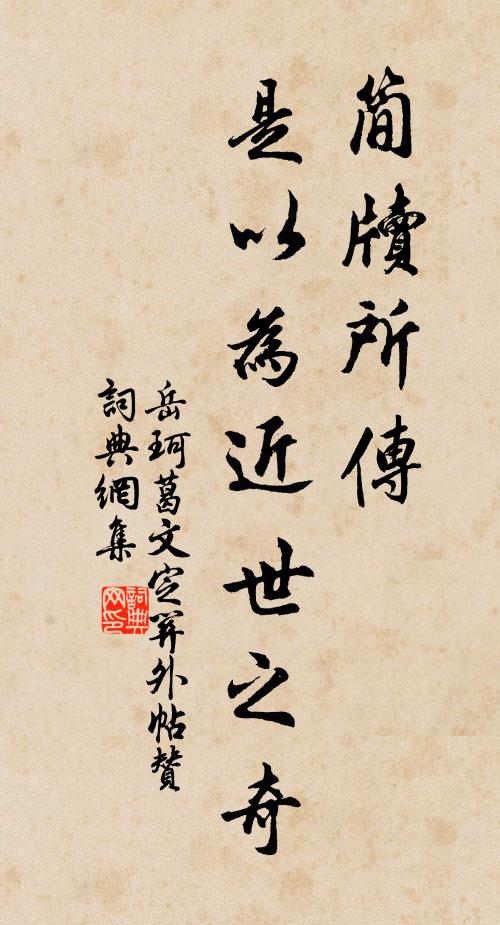 簡牘所傳
是以為近世之奇
岳珂葛文定羿外帖贊
詞典網集
詞典网印